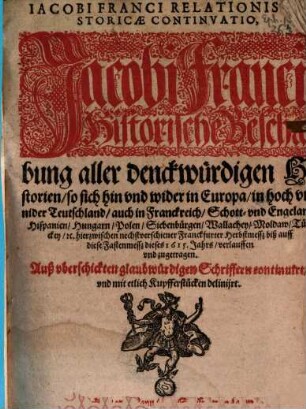 IACOBI FRANCI RELATIONIS
STORICÆ CONTINVATIO,
Jacobi Franci
Historische Beschrei
bung aller denckwürdigen
storien/ so sich hin vnd wider in Europa/ in hoch
nider Teutschland/ auch in Franckreich/ Schott- vnd Engeland
Hispanien/ Hungarn/ Polen/ Siebenbürgen/ Wallachey/ Moldaw/ Tür
ckey/ ꝛc. hierzwischen nechstverschiener Franckfurter Herbstmeß/ biß auff
diese Fastenmeß/ dieses 1615. Jahrs/ verlauffen
vnd zugetragen.
Auß vberschickten glaubwürdigen Schrifften continuiret
vnd mit etlich Kupfferstücken delinijrt.